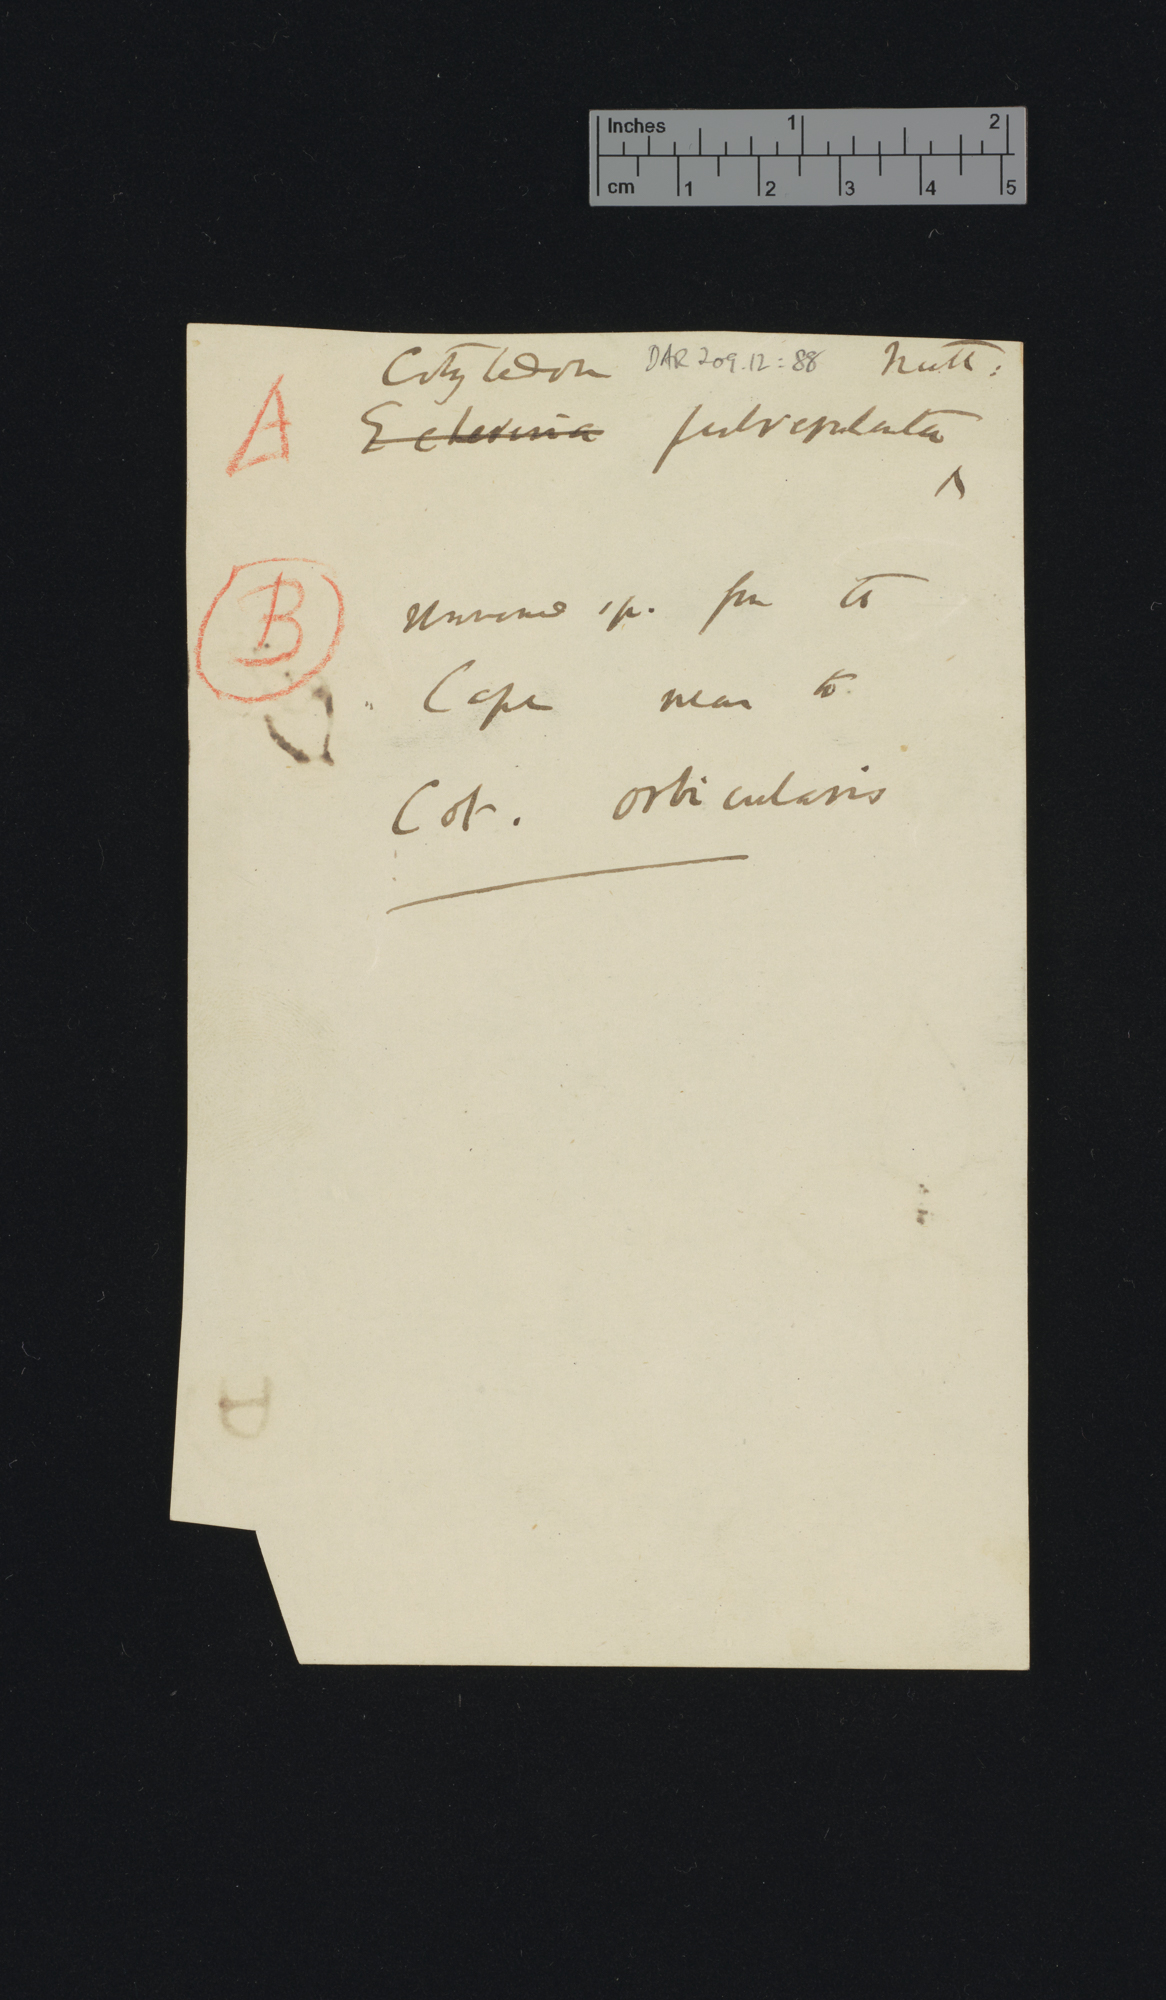 Inches 1 2
cm 1 2 3 4 5
Cotyledon DAR 209.12:88 Nutt:
A Echeveria pulverulenta
B Unnamed sp. from the
Cape near to
Cot. orbicularis
D